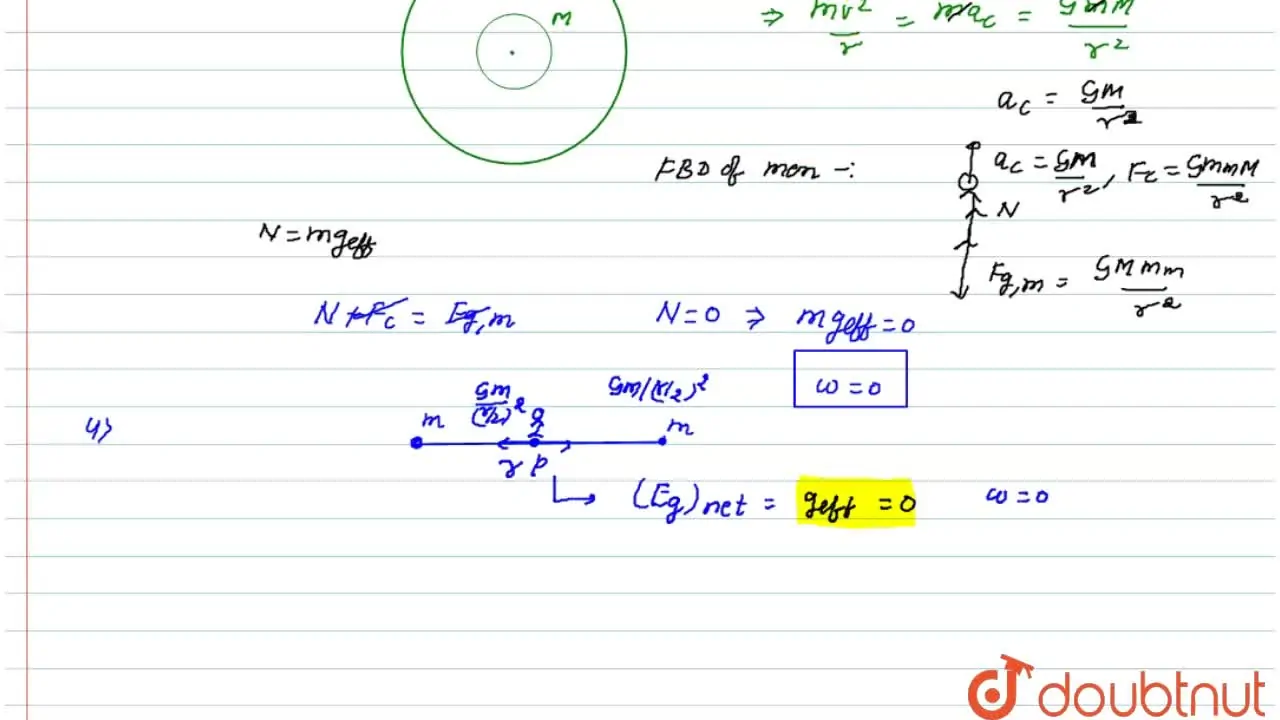 M
⇒ mv²/r = mac = GmM/r²
ac = GM/r²
FBD of man -:
ac = GM/r², Fc = GmmM/r²
N
N = mgeff
Fg,m = GMmm/r²
N + Fc = Fg,m
N = 0 ⇒ mgeff = 0
ω = 0
Gm/(r/2)²
Gm/(r/2)²
4)
m
m
r P
(Eg)net = geff = 0
ω = 0
doubtnut